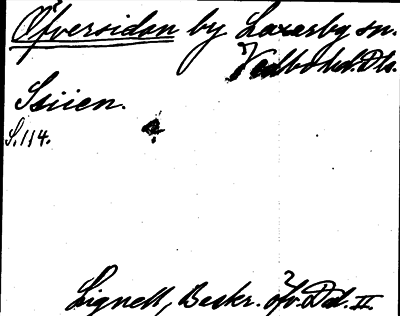 Öfversidan by Laxarby sn.
Vedbo hd. Dls.
Sviien.
S. 114.
Lignell, Beskr. öfv. Dal. II